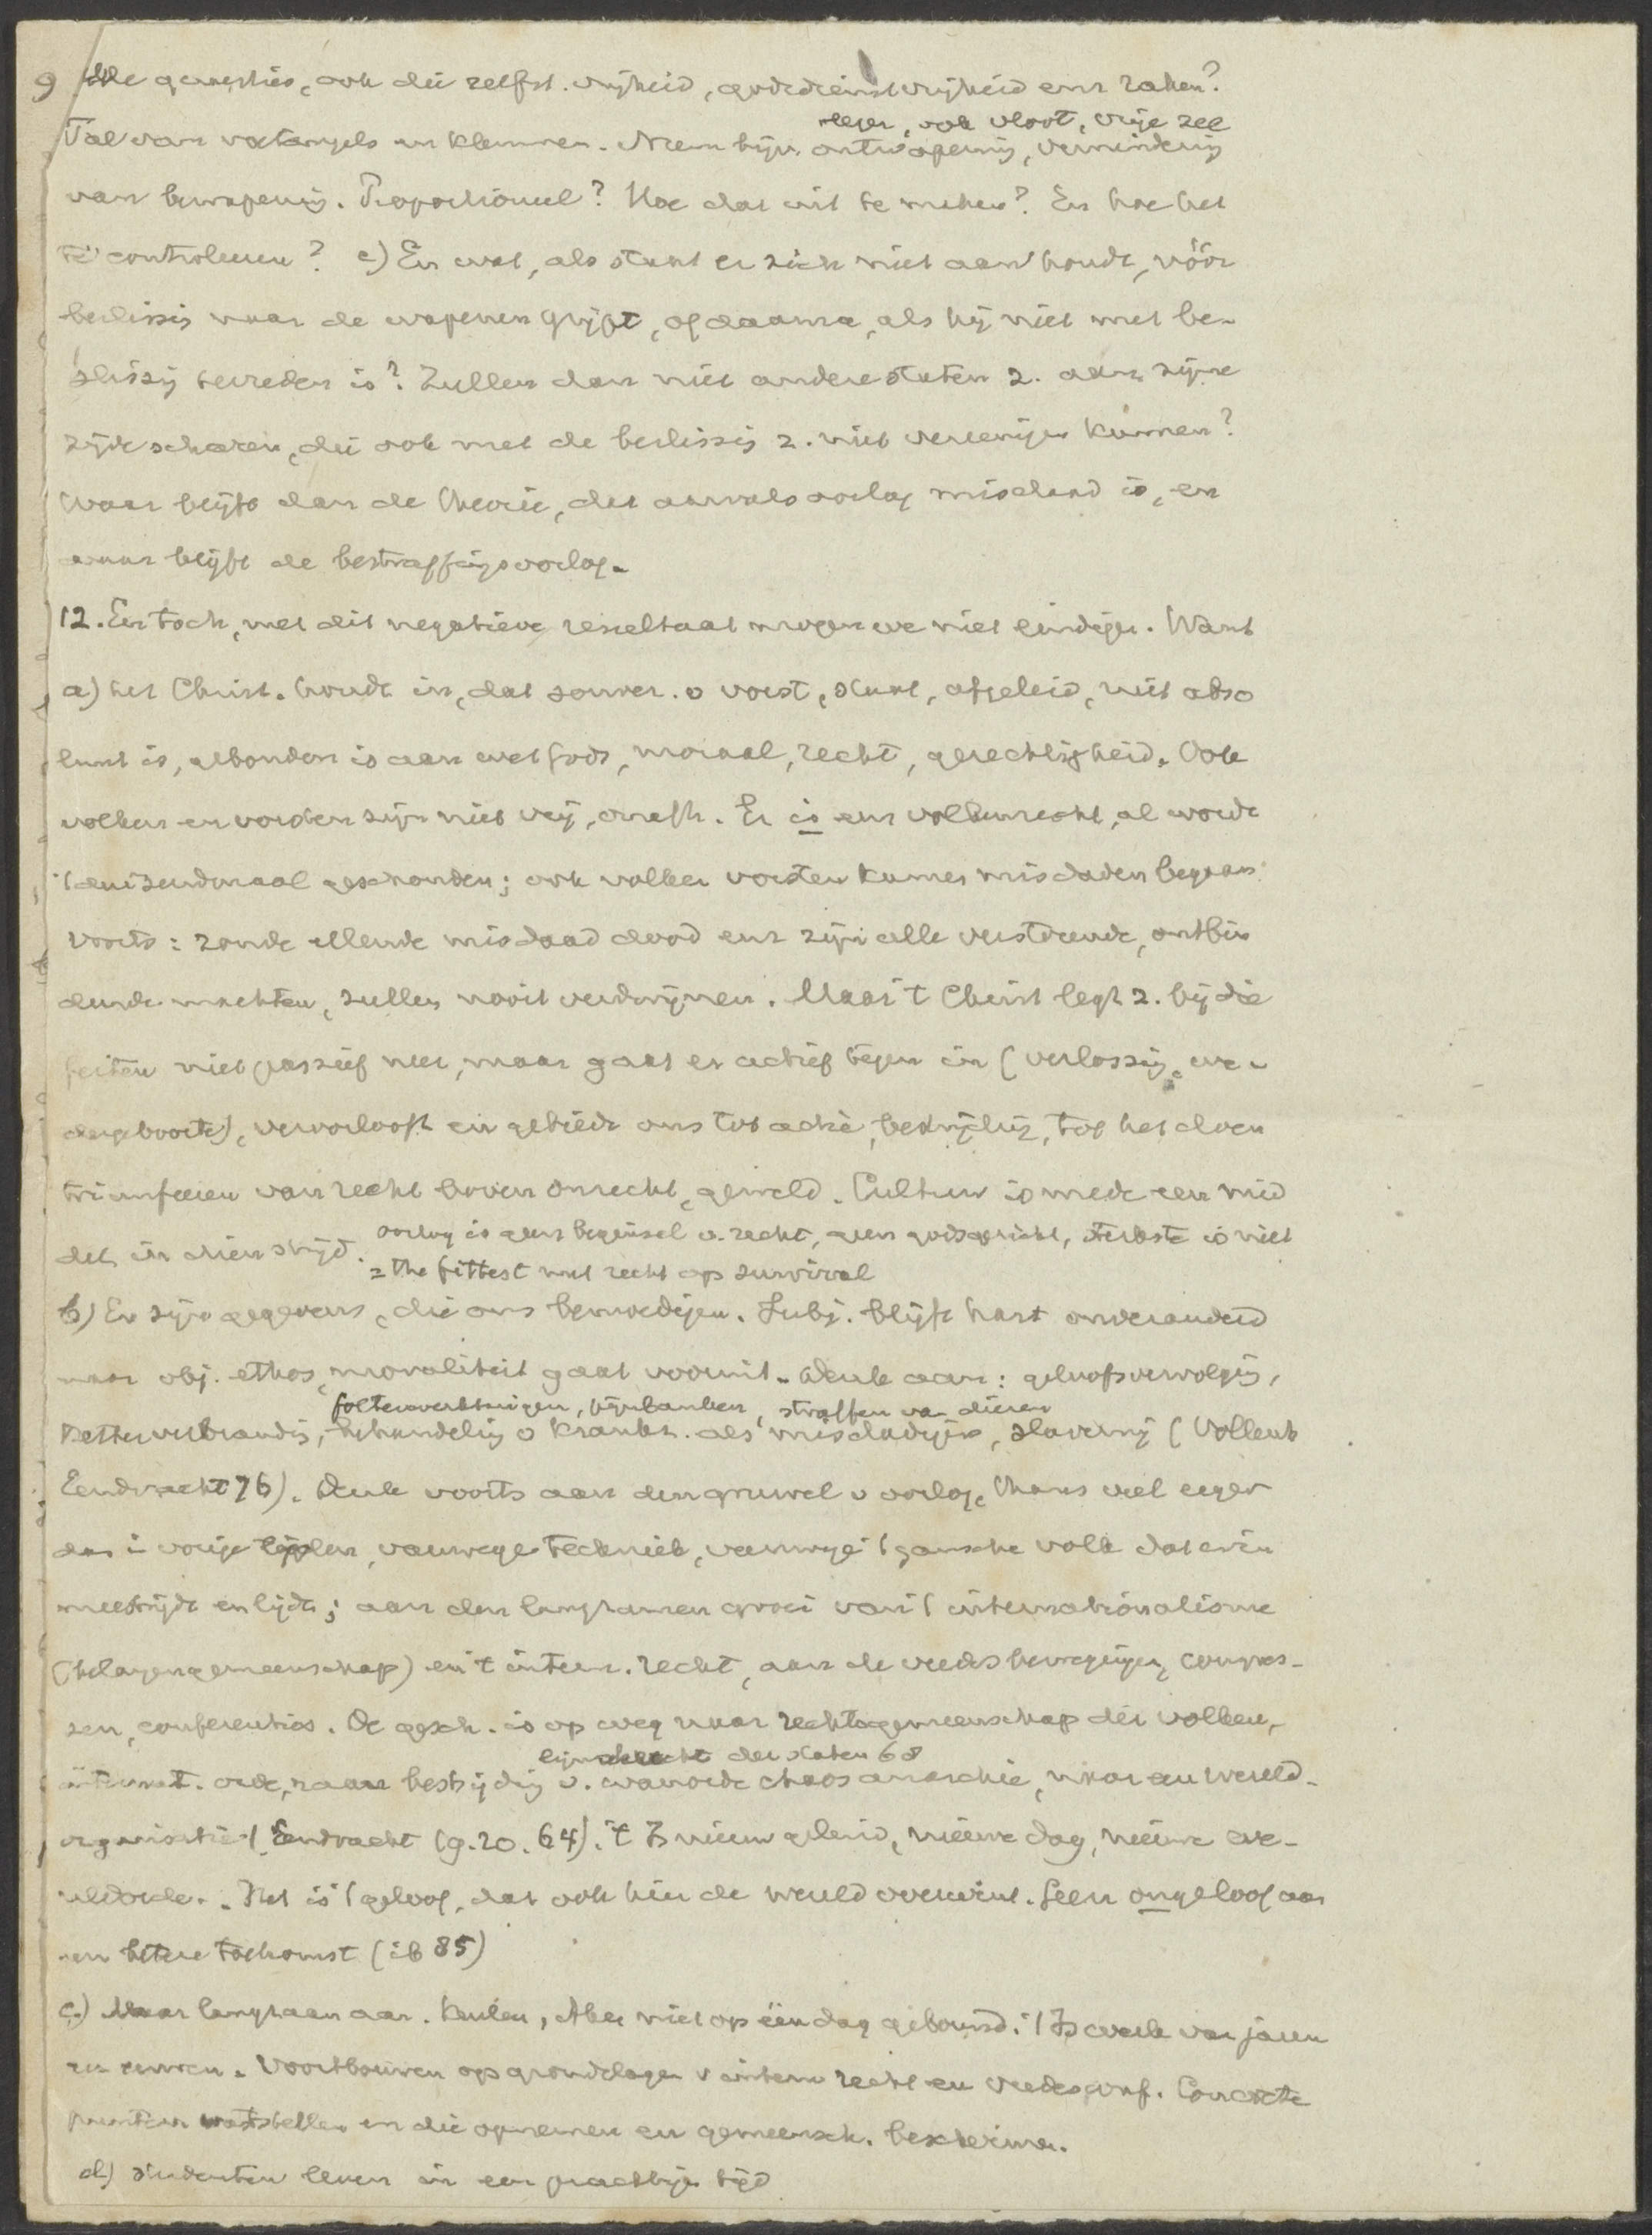 9 Alle quaesties, ook die zelfst. vrijheid, godsdienstvrijheid enz raken?
leger, ook vloot, vrije zee
Tal van voetangels en klemmen. Neem bijv. ontwapening, vermindering
van bewapening. Proportioneel? Hoe dat uit te maken? En hoe het
te controleeren? e) En wat, als staat er zich niet aan houdt, vóór
beslissig naar de wapenen grijpt, of daarna, als hij niet met be-
slissig tevreden is? Zullen dan niet andere staten z. aan zijne
zijde scharen, die ook met de beslissig z. niet vereenigen kunnen?
Waar blijft dan de theorie, dat aanvalsoorlog misdaad is, en
waar blijft de bestraffingsoorlog.
12. En toch, met dit negatieve resultaat mogen we niet eindigen. Want
a) het Christ. houdt in, dat souver. v vorst, staat, afgeleid, niet abso
luut is, gebonden is aan wet Gods, moraal, recht, gerechtigheid. Ook
volken en vorsten zijn niet vrij, onafh. Er is een volkenrecht, al worde
't duizendmaal geschonden; ook volken vorsten kunnen misdaden begaan.
Voorts: zonde ellende misdaad dood enz zijn alle verstorende, ontbin
dende machten, zullen nooit verdwijnen. Maar 't Christ legt z. bij die
feiten niet passief neer, maar gaat er actief tegen in (verlossig, we-
dergeboorte), veroorlooft en gebiedt ons tot actie, bestrijdig, tot het doen
triumfeeren van recht boven onrecht, geweld. Cultuur is mede een mid
del in dien strijd. oorlog is geen beginsel v. recht, geen godsgericht, sterkste is niet
= the fittest met recht op survival
b) Er zijn gegevens, die ons bemoedigen. Subj. blijft hart onveranderd
maar obj. ethos, moraliteit gaat vooruit. Denk aan: geloofsvervolgig,
folterwerktuigen, pijnbanken, straffen van dieren
Ketterverbrandig, behandelig v krankz. als misdadigers, slavernij (Vollenh
Eendracht 76). Denk voorts aan den gruwel v oorlog, thans veel erger
dan i vorige tijden, vanwege techniek, vanwege 't gansche volk dat erin
meestrijdt en lijdt; aan den langzamen groei van 't internationalisme
(belangengemeenschap) en 't intern. recht, aan de vredesbewegingen, congres-
sen, conferenties. De gesch. is op weg naar rechtsgemeenschap der volken,
der staten 68
internat. orde, naar bestrijdig v. wanorde chaos anarchie, naar een wereld-
organisatie 't Eendracht (9. 20. 64). 't Is nieuw geluid, nieuwe dag, nieuwe we-
reldorde. Het is 't geloof, dat ook hier de wereld overwint. Geen ongeloof aan
een betere toekomst (ib 85)
c) Maar langzaam aan. Keulen, Aken niet op één dag gebouwd. 't Is werk van jaren
en eeuwen. Voortbouwen op grondslagen v intern recht en vredesconf. Concrete
punten vaststellen en die opnemen en gemeensch. beschermen.
d) Studenten leven in een prachtigen tijd